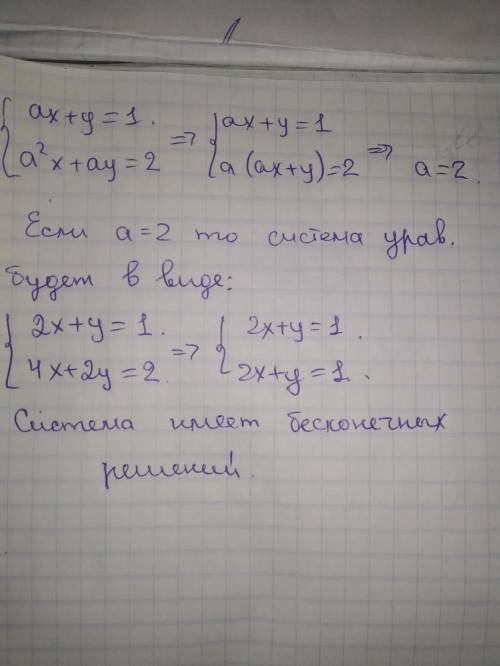 { ax+y=1. => { ax+y=1 => a=2.
{ a²x+ay=2 { a(ax+y)=2
Если a=2 то система урав.
будет в виде:
{ 2x+y=1. => { 2x+y=1.
{ 4x+2y=2. { 2x+y=1.
Система имеет бесконечных
решений.